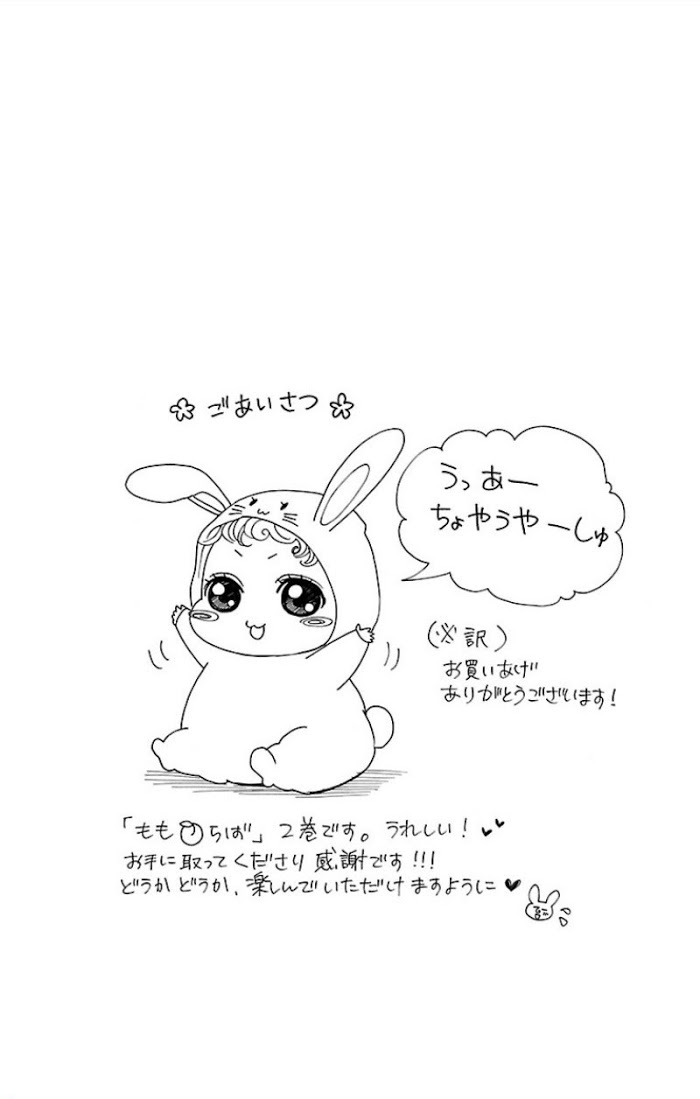 ごあいさつ
うっあー
ちょやうやーしゅ
(※訳)
お買いあげ
ありがとうございます!
「もものちば」2巻です。うれしい!
お手に取ってくださり感謝です!!!
どうかどうか、楽しんでいただけますように